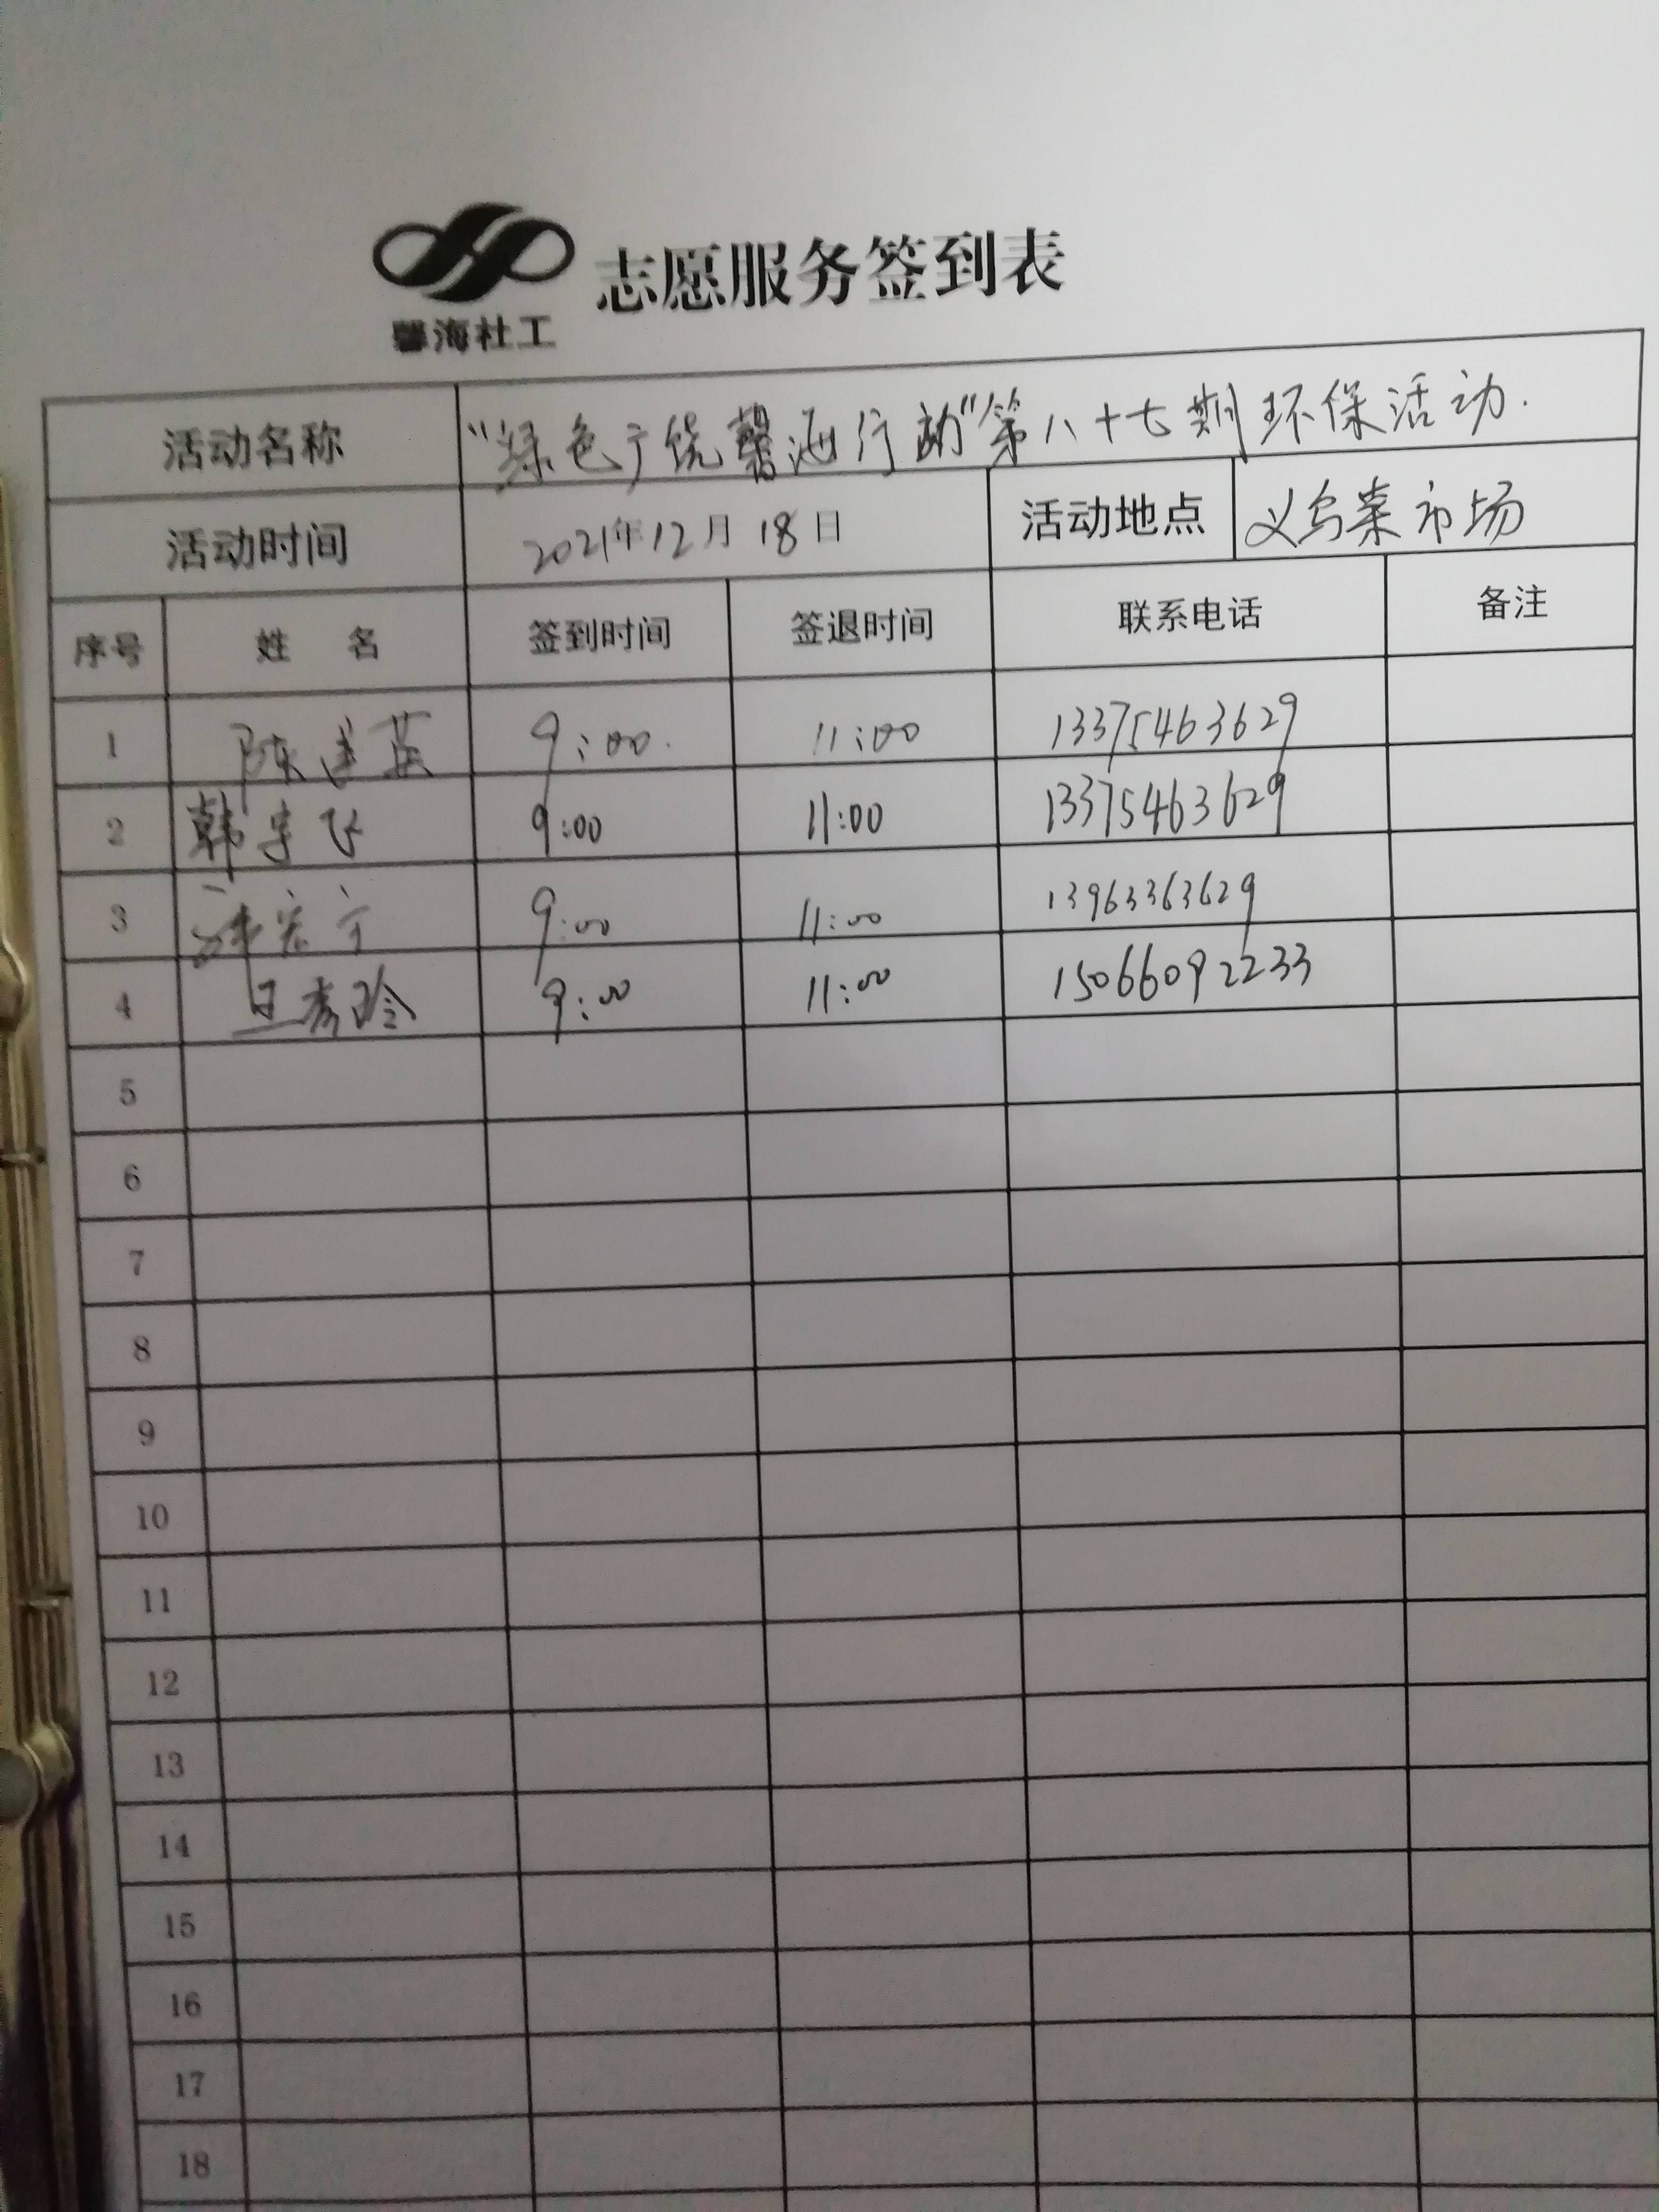 志愿服务签到表
馨海社工
活动名称 “绿色广饶馨海行动”第八十七期环保活动.
活动时间 2021年12月18日 活动地点 义乌菜市场
序号 姓 名 签到时间 签退时间 联系电话 备注
1 陈连英 9:00. 11:00 13375463629
2 韩宇飞 9:00 11:00 13375463629
3 宏宁 9:00 11:00 13963363629
4 王秀玲 9:00 11:00 15066092233
5
6
7
8
9
10
11
12
13
14
15
16
17
18